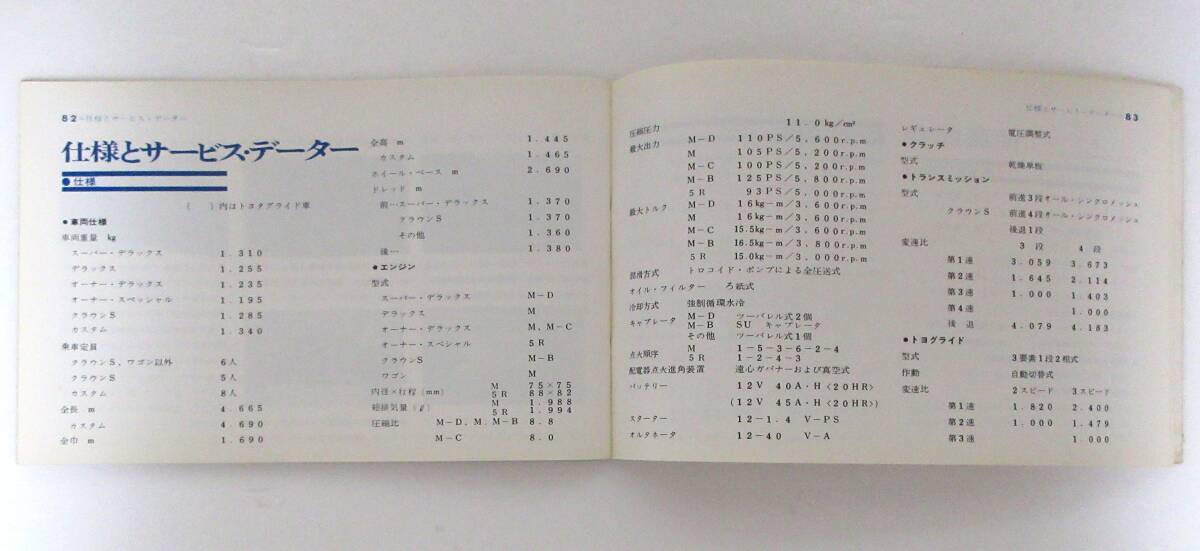 82 仕様とサービス・データー
仕様とサービス・データー
●仕様
( )内はトヨタグライド車
●車両仕様
車両重量 kg
スーパー・デラックス 1.310
デラックス 1.255
オーナー・デラックス 1.235
オーナー・スペシャル 1.195
クラウンS 1.285
カスタム 1.340
乗車定員
クラウンS，ワゴン以外 6人
クラウンS 5人
カスタム 8人
全長 m 4.665
カスタム 4.690
全巾 m 1.690
全高 m 1.445
カスタム 1.465
ホイール・ベース m 2.690
トレッド m
前…スーパー・デラックス 1.370
クラウンS 1.370
その他 1.360
後… 1.380
●エンジン
型式
スーパー・デラックス M-D
デラックス M
オーナー・デラックス M，M-C
オーナー・スペシャル 5R
クラウンS M-B
ワゴン M
内径×行程 (mm) M 75×75
5R 88×82
総排気量 (ℓ) M 1.988
5R 1.994
圧縮比 M-D，M，M-B 8.8
M-C 8.0
仕様とサービス・データー 83
圧縮圧力 11.0kg/cm²
最大出力 M-D 110PS/5,600r.p.m
M 105PS/5,200r.p.m
M-C 100PS/5,200r.p.m
M-B 125PS/5,800r.p.m
5R 93PS/5,000r.p.m
最大トルク M-D 16kg-m/3,600r.p.m
M 16kg-m/3,600r.p.m
M-C 15.5kg-m/3,600r.p.m
M-B 16.5kg-m/3,800r.p.m
5R 15.0kg-m/3,000r.p.m
潤滑方式 トロコイド・ポンプによる全圧送式
オイル・フィルター ろ紙式
冷却方式 強制循環水冷
キャブレータ M-D ツーバレル式2個
M-B SU キャブレータ
その他 ツーバレル式1個
点火順序 M 1-5-3-6-2-4
5R 1-2-4-3
配電器点火進角装置 遠心ガバナーおよび真空式
バッテリー 12V 40A・H〈20HR〉
(12V 45A・H〈20HR〉)
スターター 12-1.4 V-PS
オルタネータ 12-40 V-A
レギュレータ 電圧調整式
●クラッチ
型式 乾燥単板
●トランスミッション
型式 前進3段オール・シンクロメッシュ
クラウンS 前進4段オール・シンクロメッシュ
後退1段
変速比 3段 4段
第1速 3.059 3.673
第2速 1.645 2.114
第3速 1.000 1.403
第4速 1.000
後退 4.079 4.183
●トヨグライド
型式 3要素1段2相式
作動 自動切替式
変速比 2スピード 3スピード
第1速 1.820 2.400
第2速 1.000 1.479
第3速 1.000